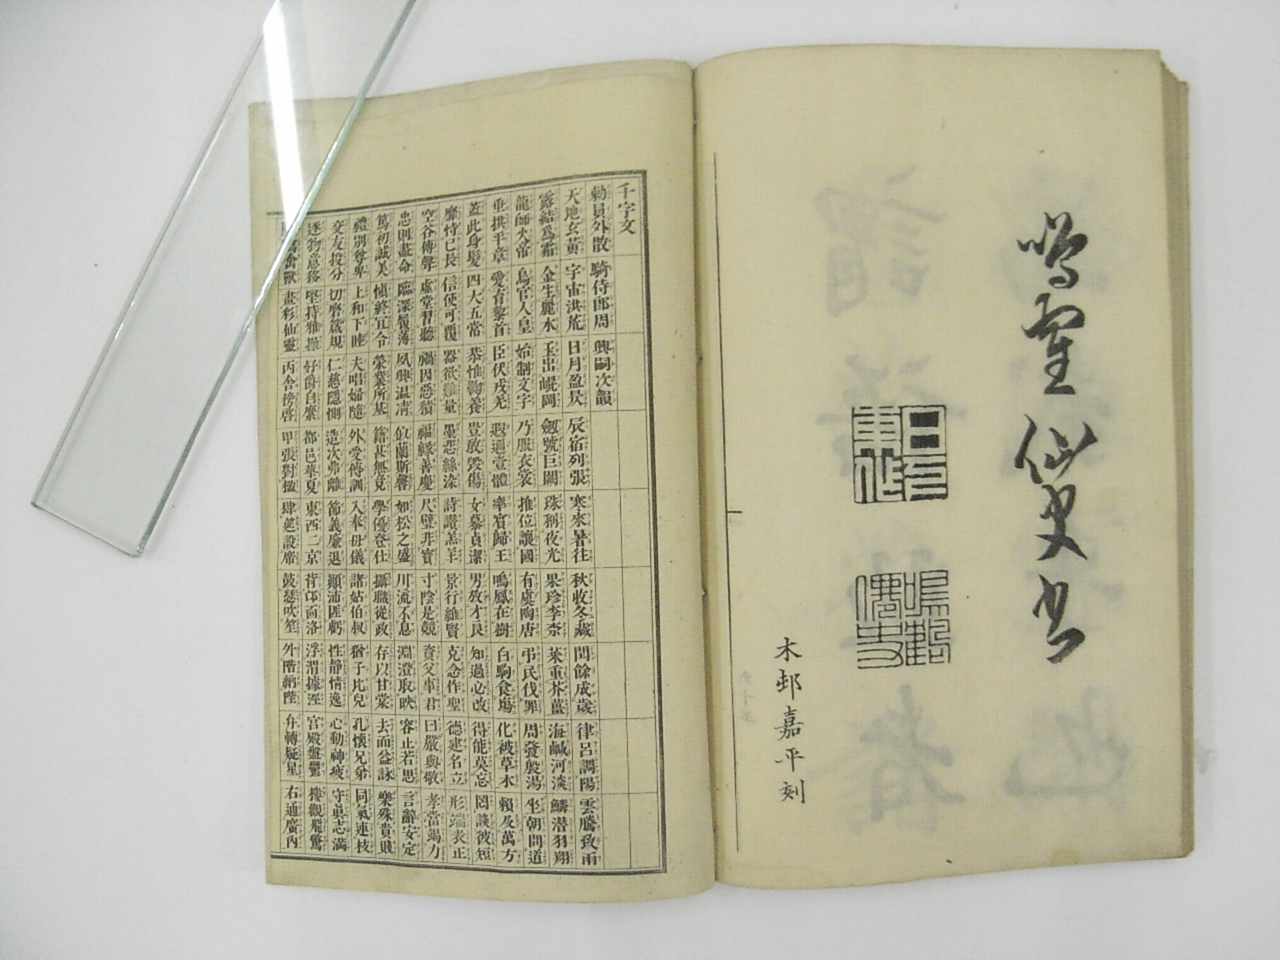 鳴寉仙史書
日下東作
鳴鶴僊史
木邨嘉平刻
千字文
勅員外散 騎侍郎周 興嗣次韻
天地玄黃 宇宙洪荒 日月盈昃 辰宿列張 寒來暑往 秋收冬藏 閏餘成歲 律呂調陽 雲騰致雨
露結爲霜 金生麗水 玉出崐岡 劔號巨闕 珠稱夜光 果珍李柰 菜重芥薑 海鹹河淡 鱗潛羽翔
龍師火帝 鳥官人皇 始制文字 乃服衣裳 推位讓國 有虞陶唐 弔民伐罪 周發殷湯 坐朝問道
垂拱平章 愛育黎首 臣伏戎羌 遐邇壹體 率賓歸王 鳴鳳在樹 白駒食場 化被草木 賴及萬方
蓋此身髮 四大五常 恭惟鞠養 豈敢毀傷 女慕貞潔 男效才良 知過必改 得能莫忘 罔談彼短
靡恃己長 信使可覆 器欲難量 墨悲絲染 詩讚羔羊 景行維賢 克念作聖 德建名立 形端表正
空谷傳聲 虛堂習聽 禍因惡積 福緣善慶 尺璧非寶 寸陰是競 資父事君 曰嚴與敬 孝當竭力
忠則盡命 臨深履薄 夙興温凊 似蘭斯馨 如松之盛 川流不息 淵澄取映 容止若思 言辭安定
篤初誠美 慎終宜令 榮業所基 籍甚無竟 學優登仕 攝職從政 存以甘棠 去而益詠 樂殊貴賤
禮別尊卑 上和下睦 夫唱婦隨 外受傅訓 入奉母儀 諸姑伯叔 猶子比兒 孔懷兄弟 同氣連枝
交友投分 切磨箴規 仁慈隱惻 造次弗離 節義廉退 顛沛匪虧 性靜情逸 心動神疲 守眞志滿
逐物意移 堅持雅操 好爵自縻 都邑華夏 東西二京 背邙面洛 浮渭據涇 宮殿盤鬱 樓觀飛驚
寫禽獸 畫彩仙靈 丙舍傍啓 甲帳對楹 肆筵設席 鼓瑟吹笙 升階納陛 弁轉疑星 右通廣內